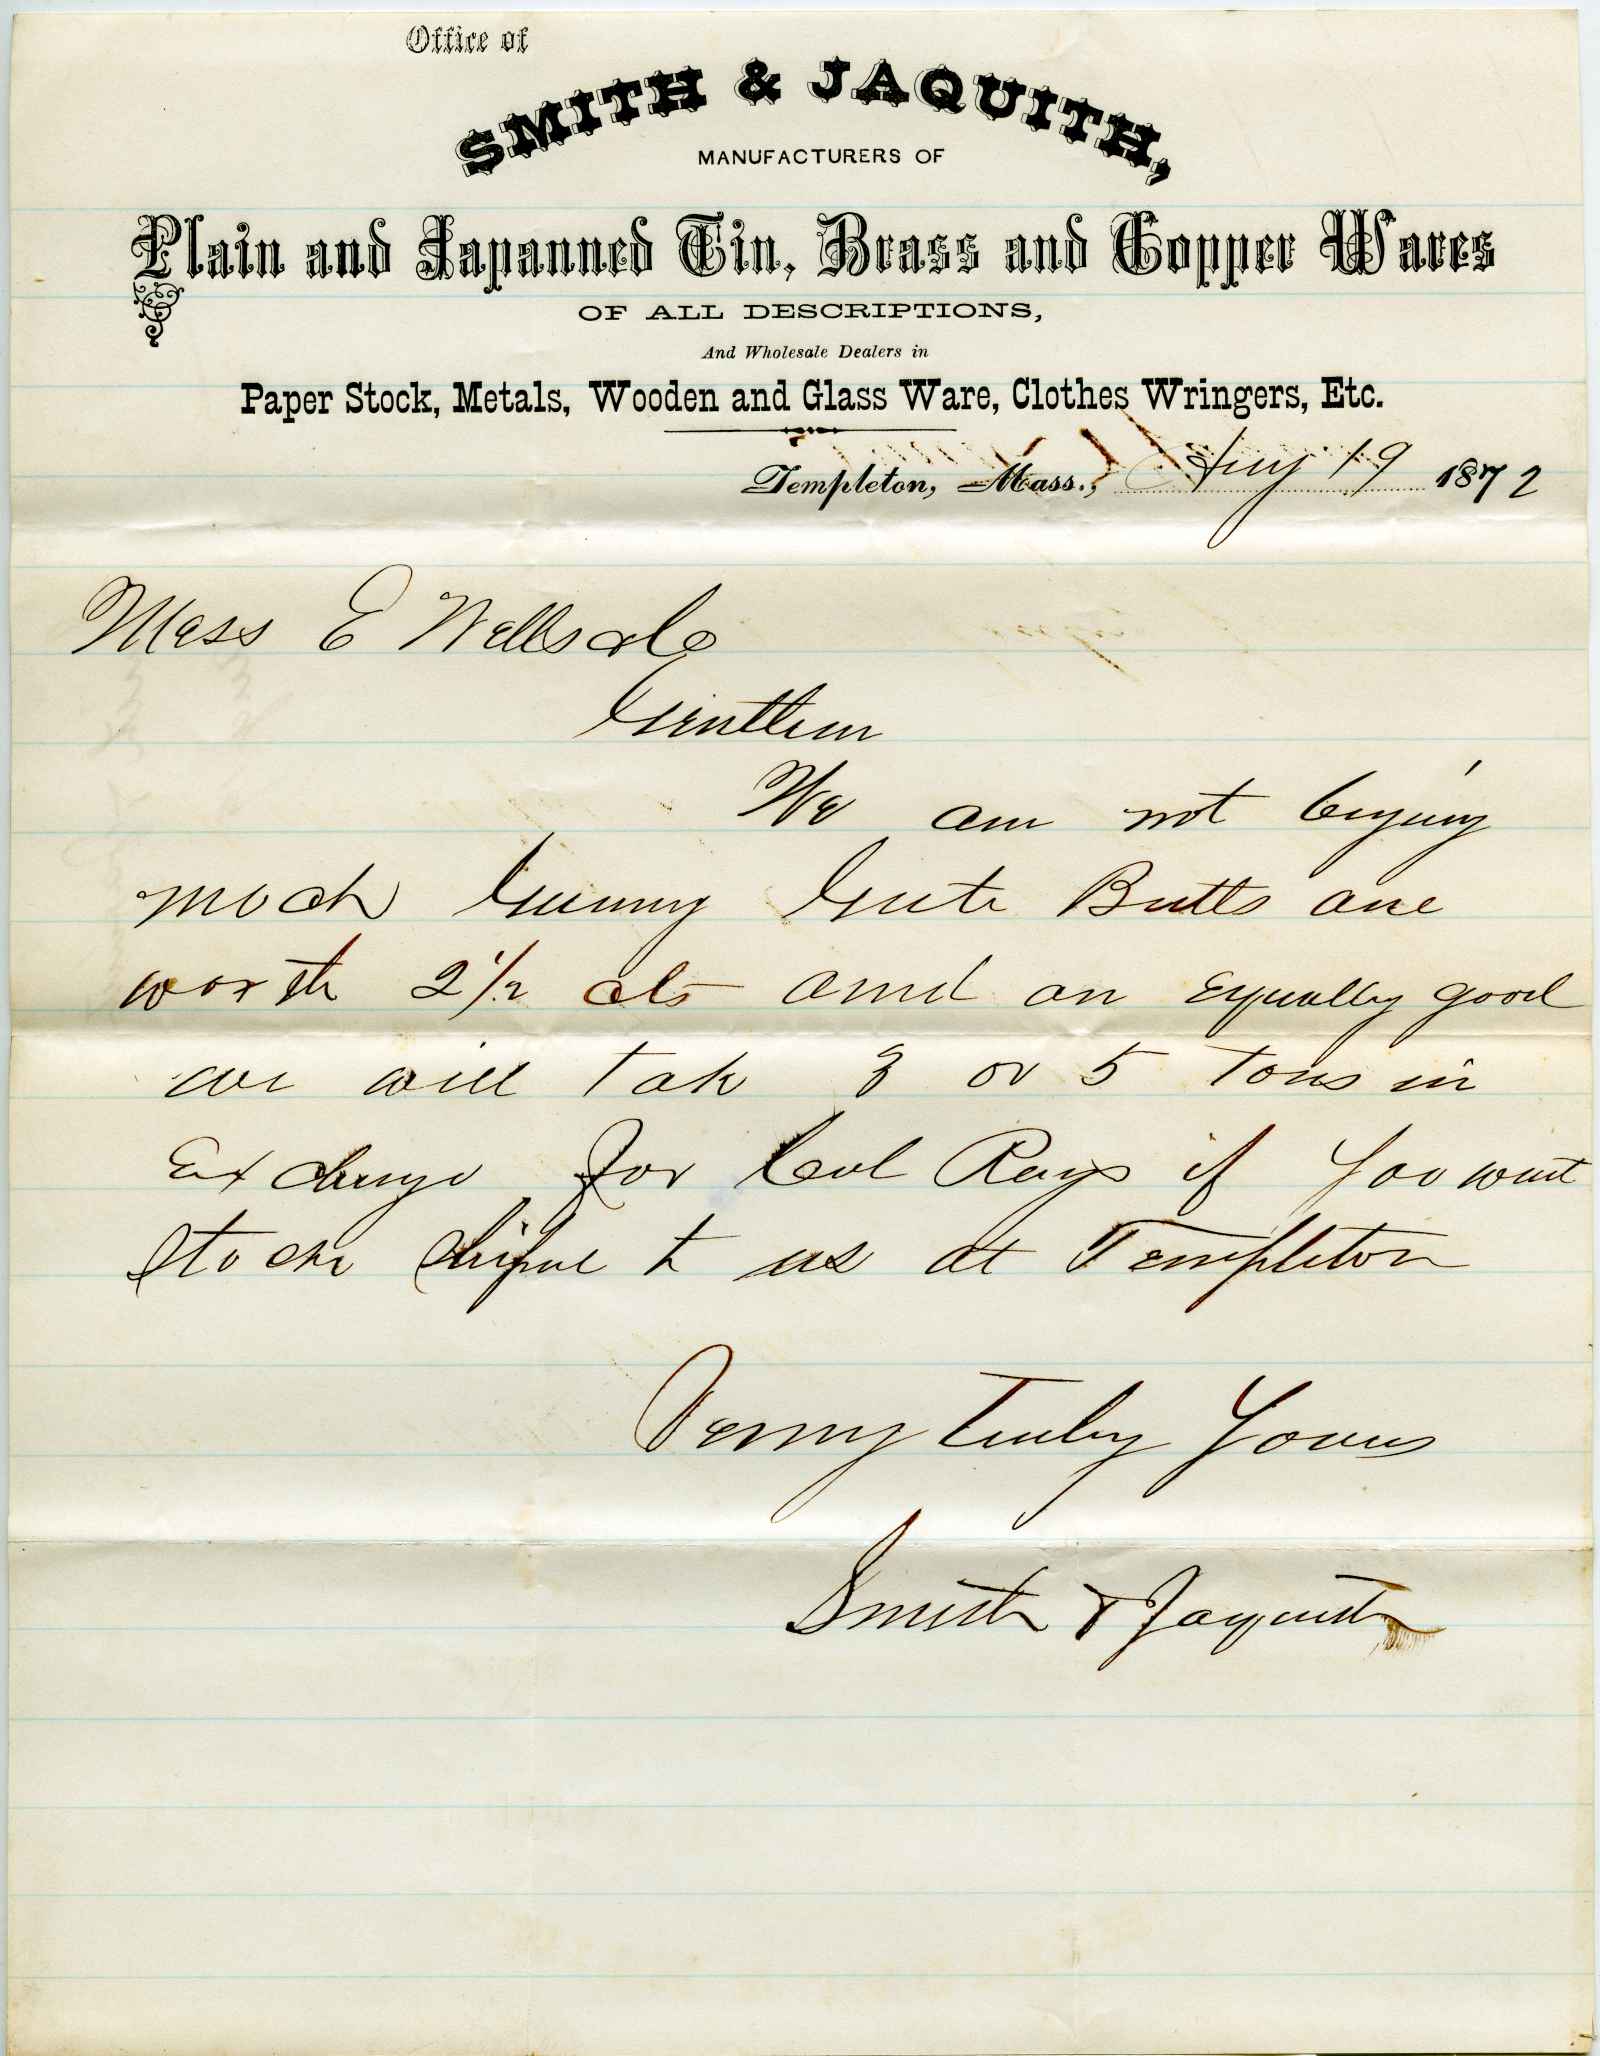 Office of
SMITH & JAQUITH,
MANUFACTURERS OF
Plain and Japanned Tin, Brass and Copper Wares
OF ALL DESCRIPTIONS,
And Wholesale Dealers in
Paper Stock, Metals, Wooden and Glass Ware, Clothes Wringers, Etc.
Templeton, Mass., Aug 19 1872
Mess E Wells & Co
Gentlem
We am not buying
much Gunny Gute Butts are
worth 2 1/2 cts and an equally good
we will tak 3 or 5 Tons in
Exchange for Col Rags if You want
Stock to us at Templeton
Very Truly Yours
Smith & Jaquith